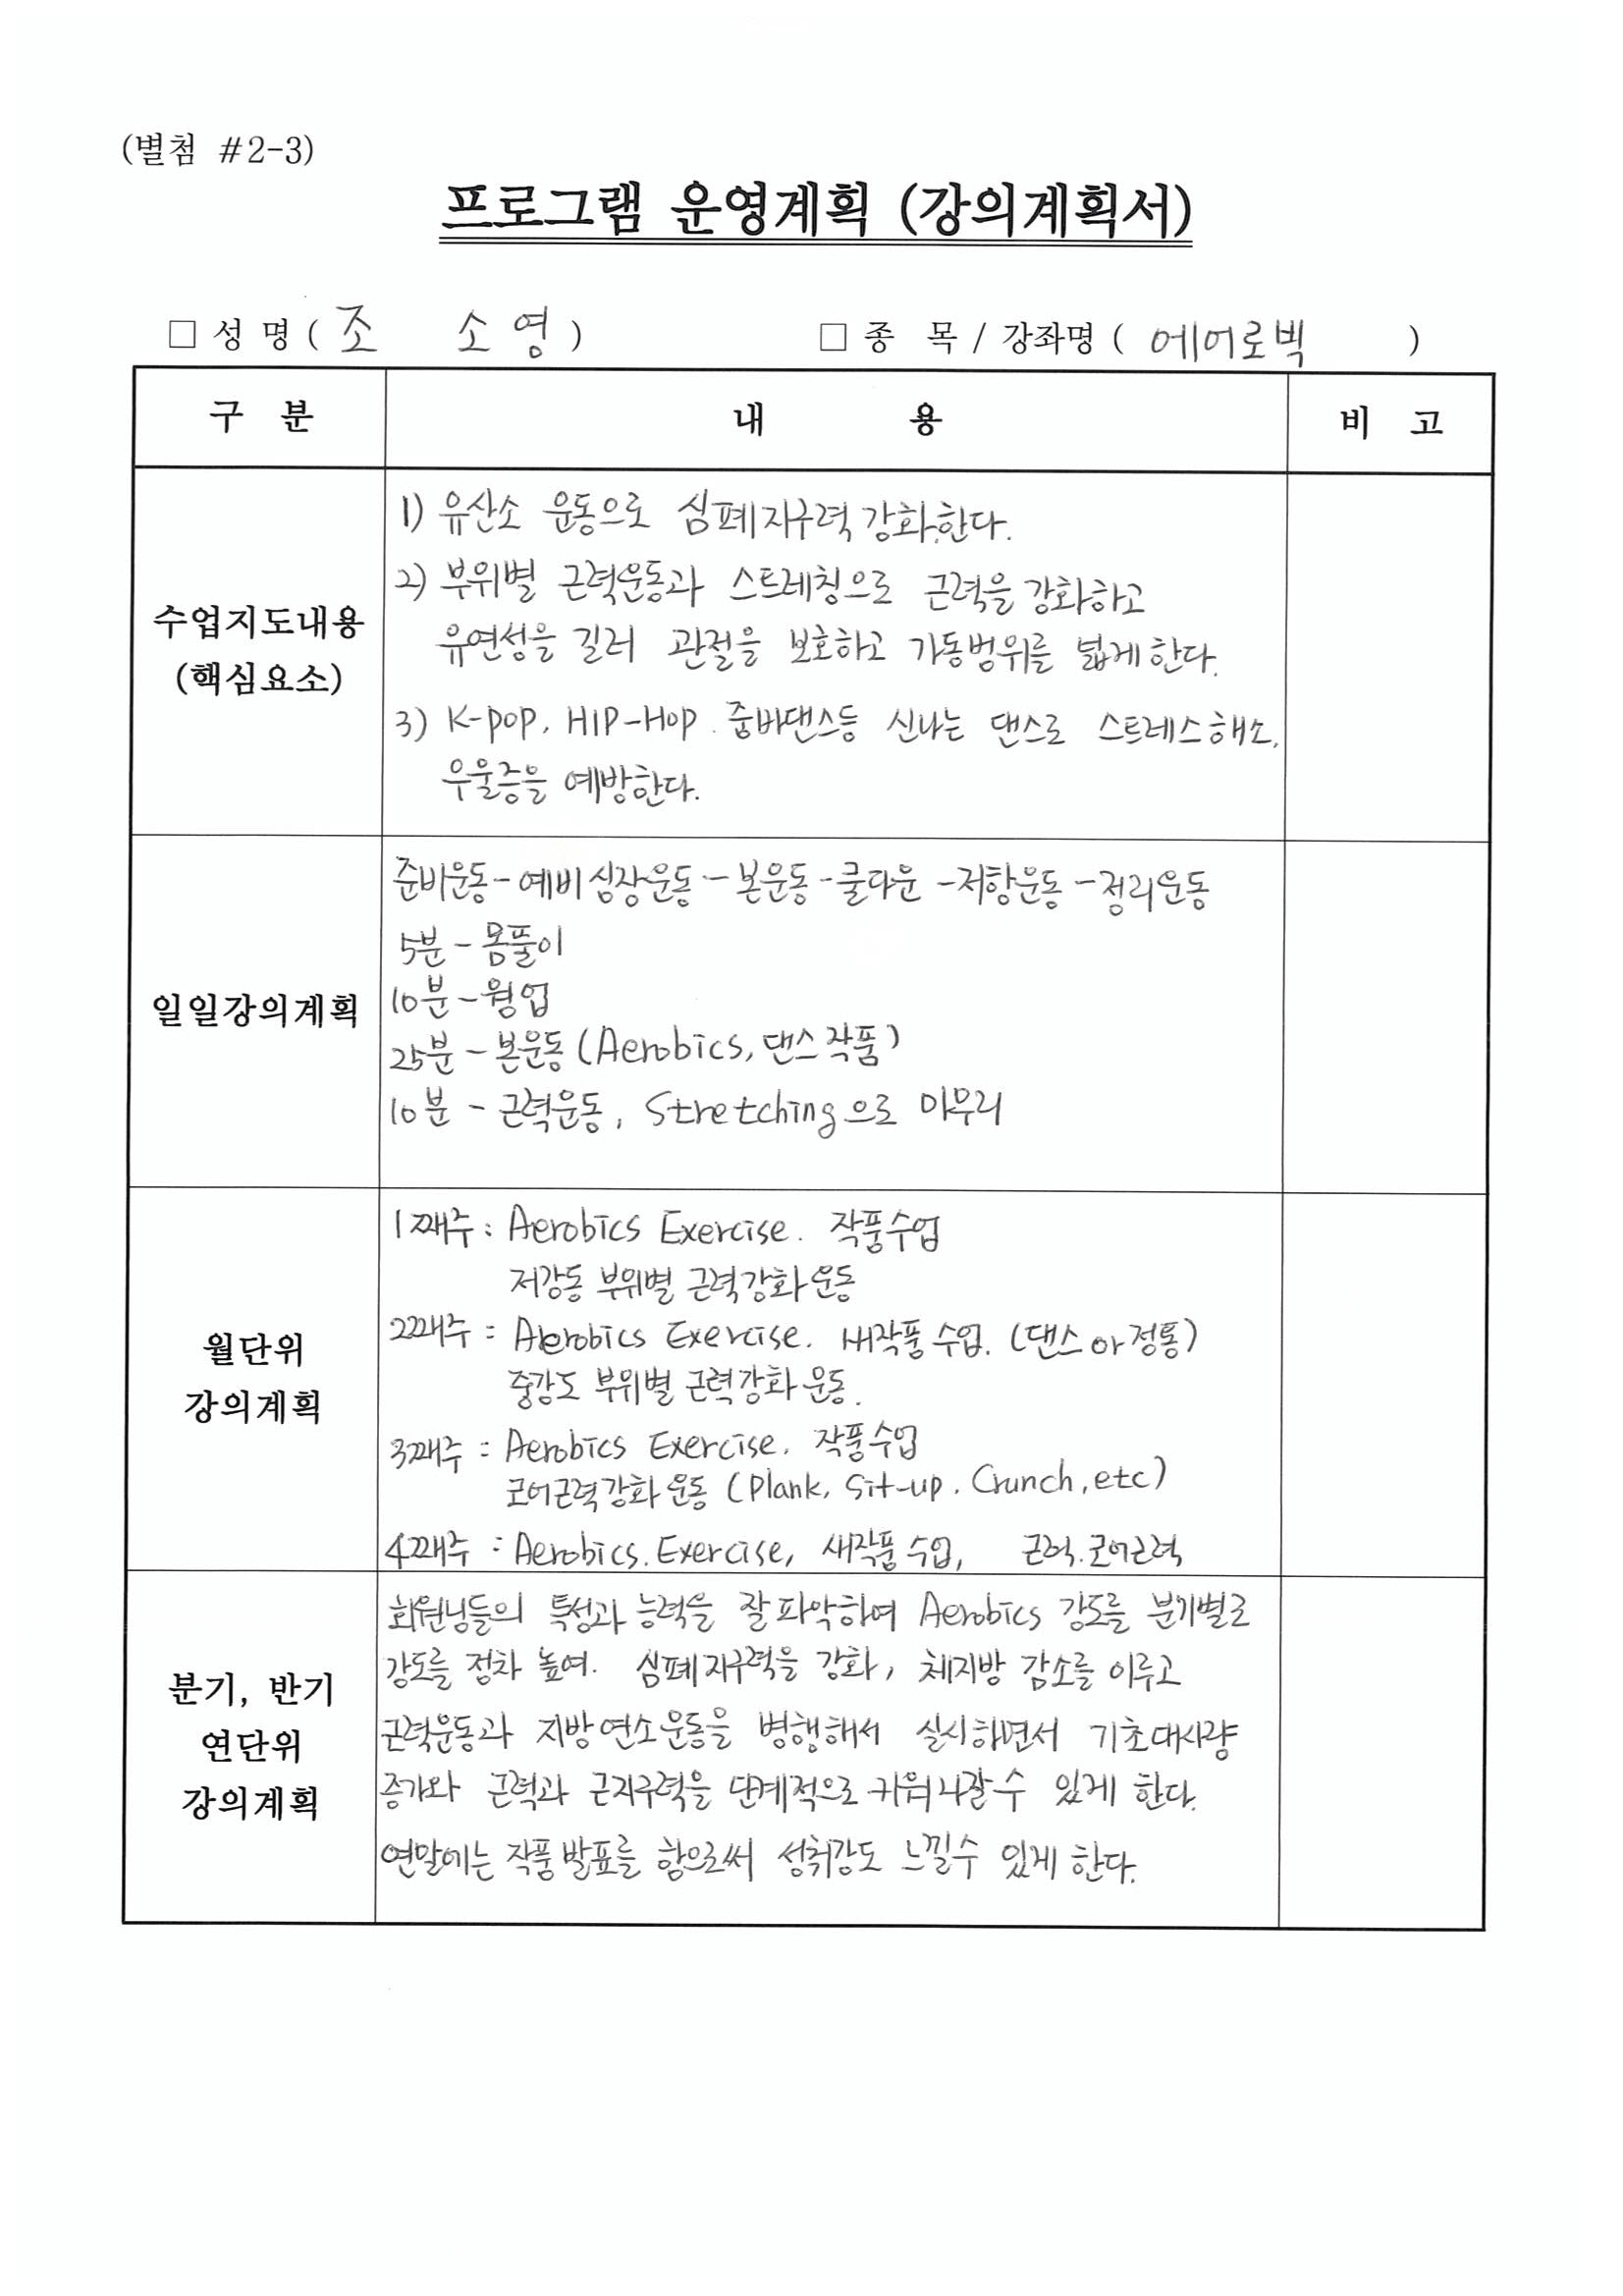 (별첨 #2-3)
프로그램 운영계획 (강의계획서)
□ 성 명 ( 조 소 영 ) □ 종 목 / 강좌명 ( 에어로빅 )
구 분 내 용 비 고
수업지도내용
(핵심요소)
1) 유산소 운동으로 심폐지구력 강화한다.
2) 부위별 근력운동과 스트레칭으로 근력을 강화하고
유연성을 길러 관절을 보호하고 가동범위를 넓게 한다.
3) K-pop, HIP-Hop. 줌바댄스등 신나는 댄스로 스트레스해소,
우울증을 예방한다.
일일강의계획
준비운동-예비심장운동-본운동-쿨다운-저항운동-정리운동
5분 - 몸풀이
10분 - 웜업
25분 - 본운동 (Aerobics, 댄스작품)
10분 - 근력운동, Stretching으로 마무리
월단위
강의계획
1째주 : Aerobics Exercise. 작품수업
저강동 부위별 근력강화운동
2째주 : Aerobics Exercise. 새작품수업. (댄스 or 정통)
중강도 부위별 근력강화운동.
3째주 : Aerobics Exercise. 작품수업
코어근력강화운동 (Plank, Sit-up. Crunch, etc)
4째주 : Aerobics. Exercise, 새작품수업, 근력.코어근력
분기, 반기
연단위
강의계획
회원님들의 특성과 능력을 잘파악하여 Aerobics 강도를 분기별로
강도를 점차 높여. 심폐지구력을 강화, 체지방 감소를 이루고
근력운동과 지방연소운동을 병행해서 실시하면서 기초대사량
증가와 근력과 근지구력을 단계적으로 키워나갈수 있게 한다.
연말에는 작품발표를 함으로써 성취감도 느낄수 있게 한다.